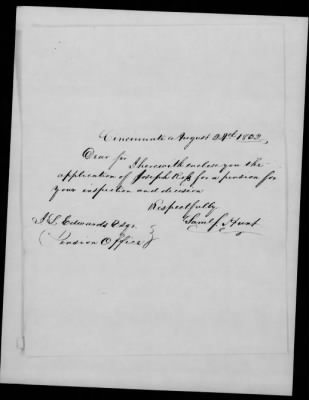 Cincinnati August 24th 1833,
Dear Sir I herewith enclose you the
application of Joseph for a pension for
your inspection and decision
Respectfully
J. L. Edwards Esqr. Saml. J. Hunt
(Pension Office)